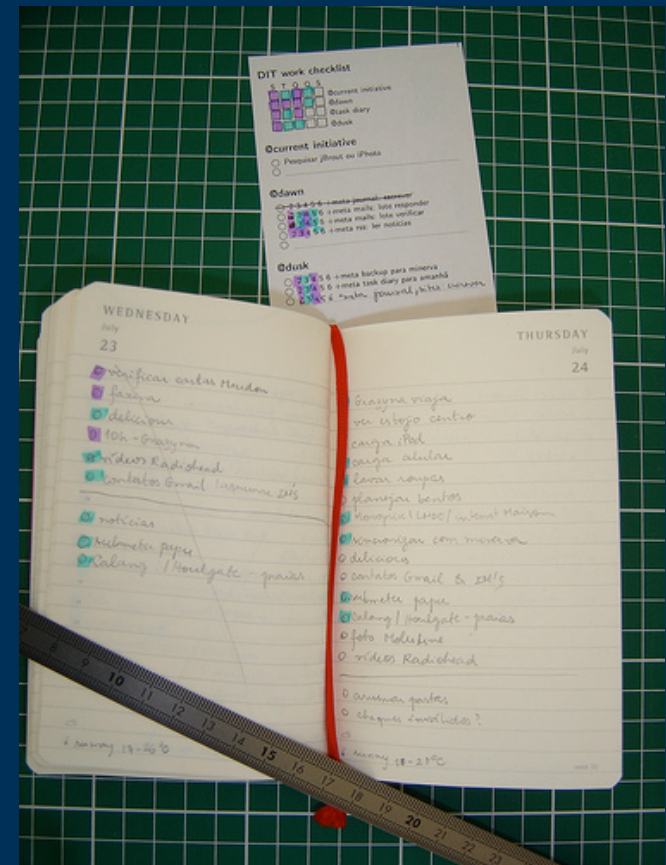 DIT work checklist
S T Q Q S
@current initiative
@dawn
@task diary
@dusk
@current initiative
Pesquisar jBrout ou iPhoto
@dawn
2 3 4 5 6 +meta journal: escrever
2 3 4 5 6 +meta mails: lote responder
2 3 4 5 6 +meta mails: lote verificar
2 3 4 5 6 +meta rss: ler notícias
@dusk
2 3 4 5 6 +meta backup para minerva
2 3 4 5 6 +meta task diary para amanhã
2 3 4 5 6 +meta journal, bites: escrever
WEDNESDAY
July
23
verificar cartas Meudon
faxina
delicious
10h - Grazyna
vídeos Radiohead
contatos Gmail IM's
notícias
submeter paper
Calang / Houlgate - praias
sunny 14-26°C
THURSDAY
July
24
Grazyna viaja
ver estojo centro
carga iPod
carga celular
lavar roupas
planejar bentos
Monoprix / LMDE /
sincronizar com minerva
delicious
contatos Gmail & IM's
submeter paper
Calang / Houlgate - praias
foto Moleskine
vídeos Radiohead
arrumar pastas
cheques inválidos?
sunny 18-27°C
7 8 9 10 11 12 13 14 15 16 17 18 19 20 21 22 23